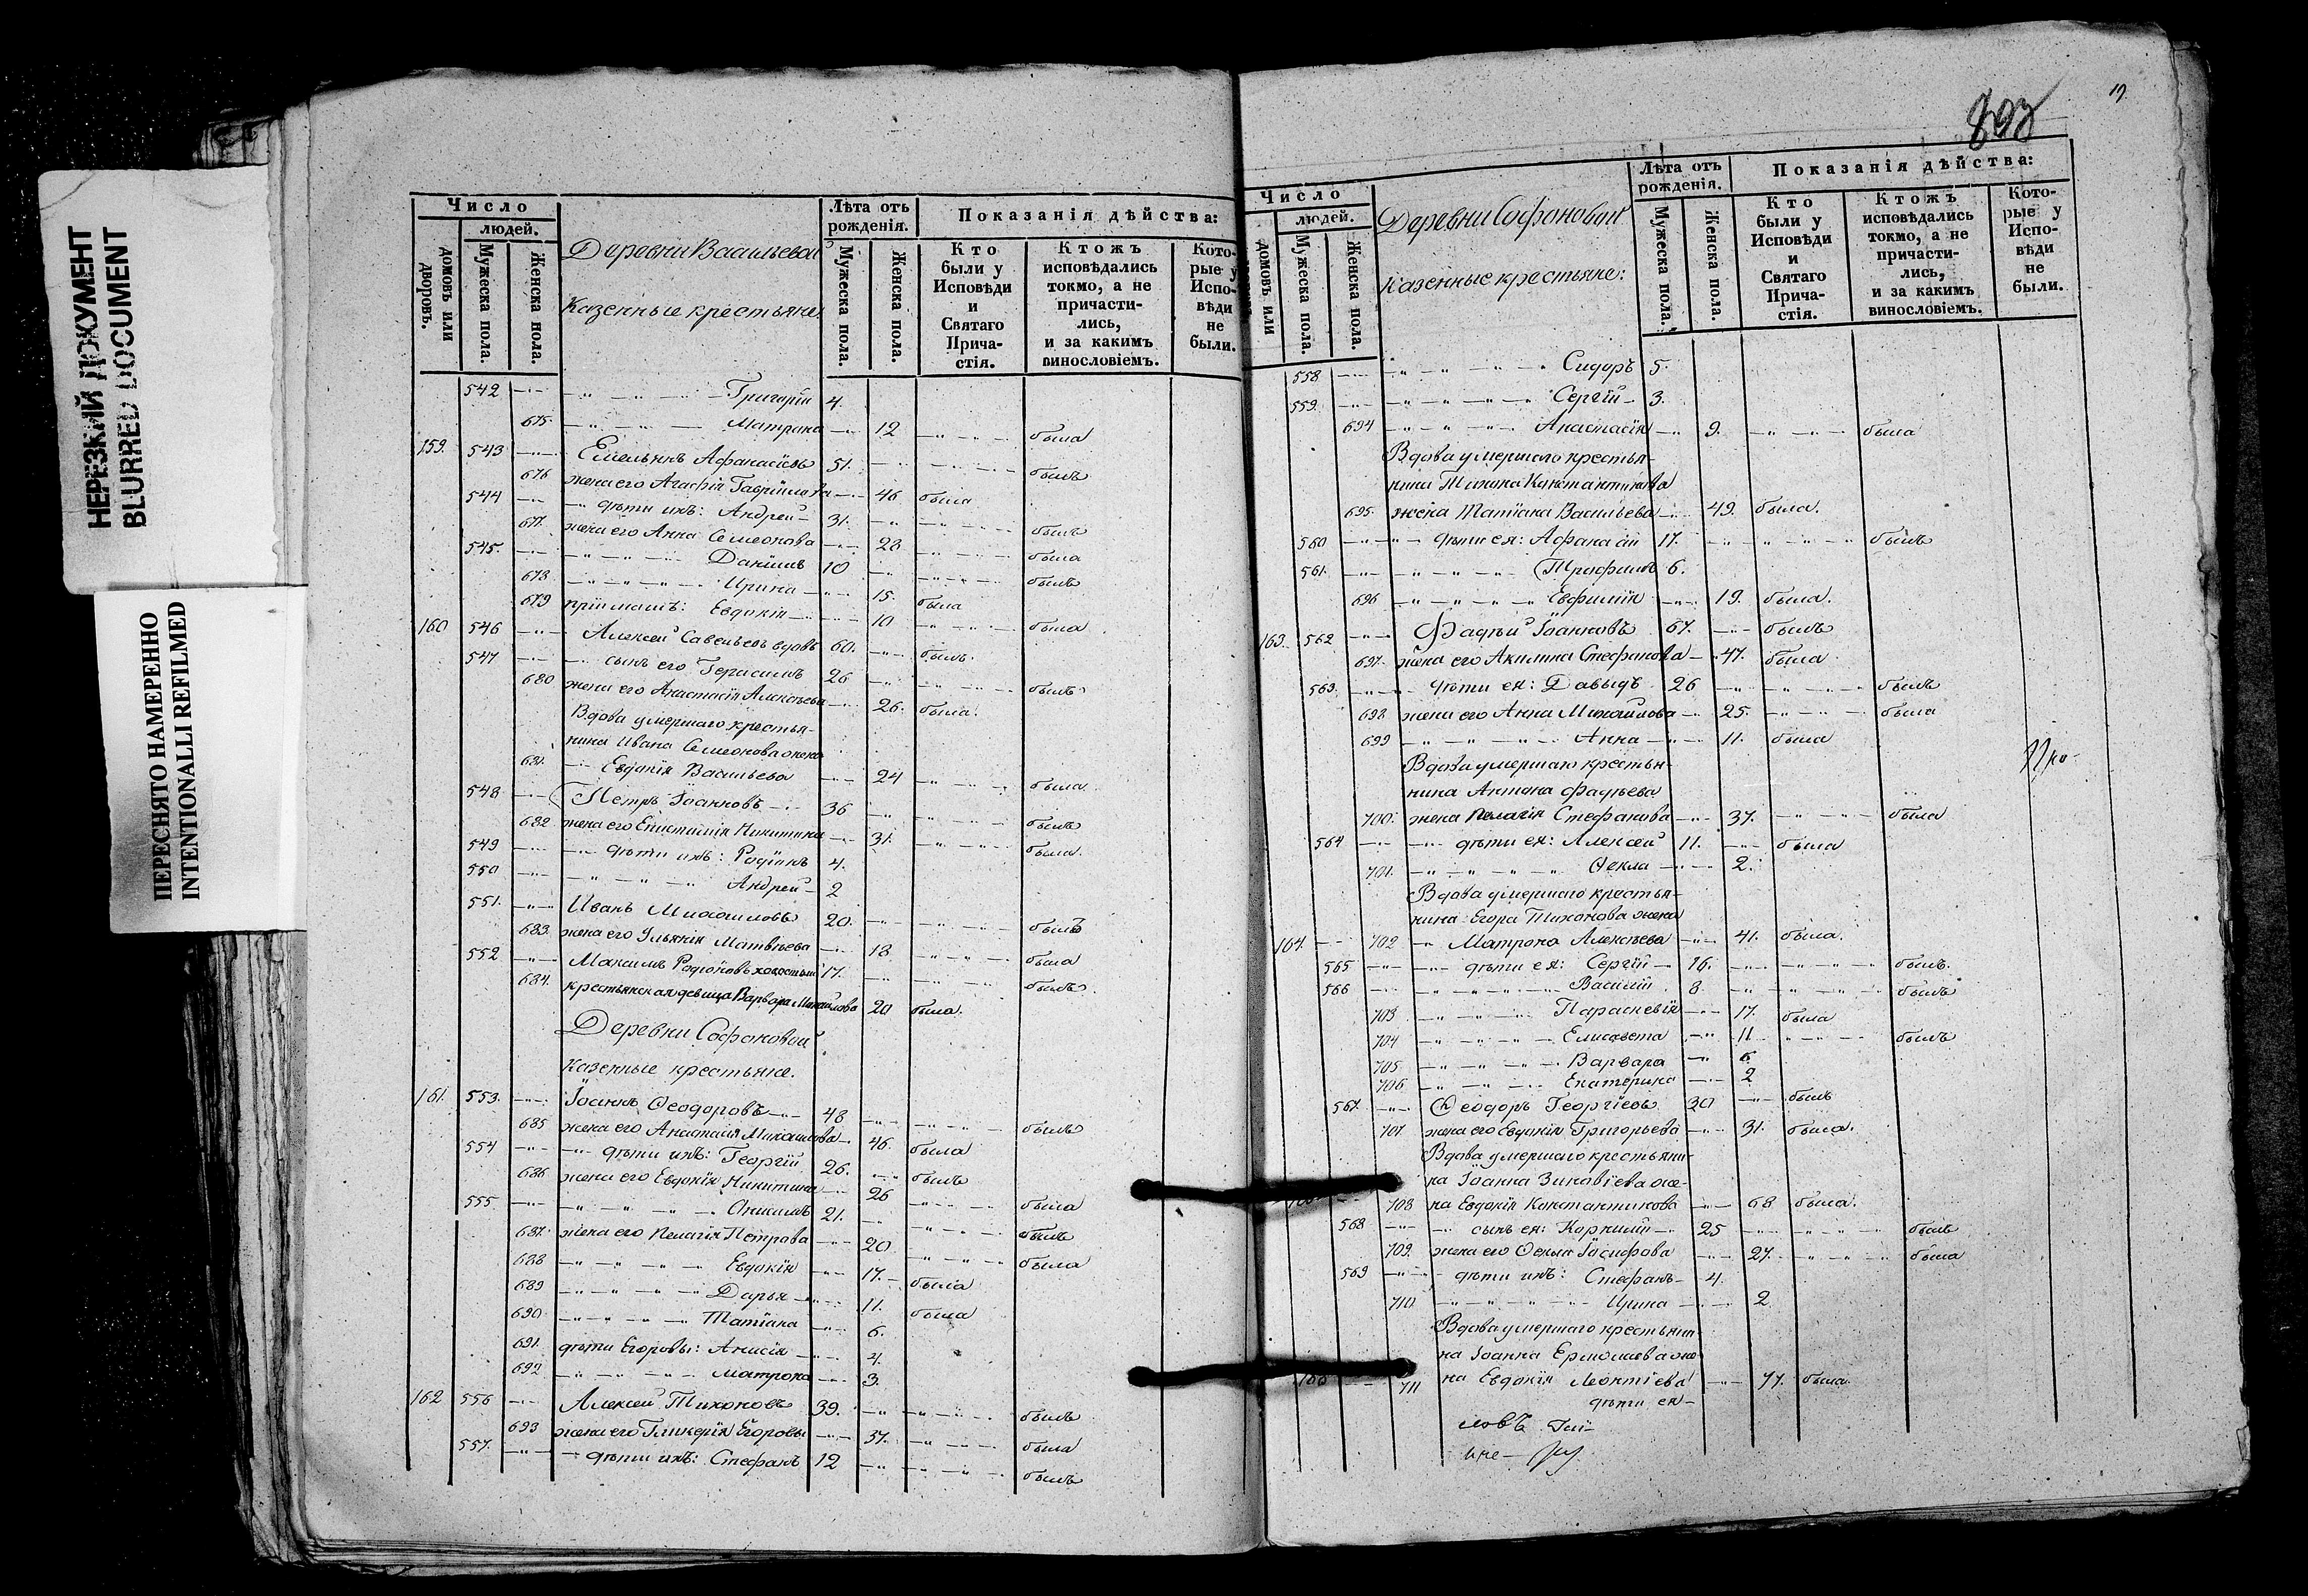 НЕРЕЗКИЙ ДОКУМЕНТ
BLURRED DOCUMENT
ПЕРЕСНЯТО НАМЕРЕННО
INTENTIONALLI REFILMED
Число
людей.
домовъ или дворовъ.
Мужеска пола.
Женска пола.
Деревни Васильевой
Казенные крестьяне
Лѣта отъ рожденія.
Мужеска пола.
Женска пола.
Показанія дѣйства:
Кто были у Исповѣди и Святаго Прича-стія.
Ктожъ исповѣдались токмо, а не причасти-лись, и за какимъ винословіемъ.
Кото-рые у Испо-вѣди не были.
542 Григорій 4.
675. Матрона 12 была
159. 543 Емельянъ Афанасіевъ 51. былъ
676 жена его Агафія Гавріилова 46 была
544 дѣти ихъ: Андрей 31. былъ
677. жена его Анна Семеонова 28 была
545. Даніилъ 10 былъ
678 Ирина 15. была
679 пріимашъ: Евдокія 10 была
160 546 Алексей Савельевъ вдовъ 60. былъ.
547 сынъ его Герасимъ 26 былъ
680 жена его Анастасія Алексѣева 26. была.
Вдова умершаго крестья-
нина Ивана Семеонова жена
681. Евдокія Васильева 24 была
548 Петръ Іоанновъ 36 былъ
682 жена его Епистимія Никитина 31. была.
549 дѣти ихъ: Родіонъ 4.
550 Андрей 2
551. Иванъ Михаиловъ 20. былъ
683. жена его Ульянія Матвѣева 18 была
552 Максимъ Родіоновъ холостый 17. былъ.
684. крестьянская девица Варвара Михайлова 20 была.
Деревни Софоновой
Казенные крестьяне.
161. 553. Іоаннъ Ѳеодоровъ 48 былъ
685 жена его Анастасія Михаилова 46. была
554 дѣти ихъ: Георгій 26. былъ
686 жена его Евдокія Никитина 26 была
555 Анисимъ 21. былъ
687. жена его Пелагія Петрова 20 была
688 Евдокія 17. была
689 Дарья 11. была
690 Татіана 6.
691. дѣти Егоровы: Анисія 4.
692 Матрона 3.
162 556 Алексей Тихоновъ 39. былъ
693 жена его Гликерія Егорова 37. была
557. дѣти ихъ: Стефанъ 12 былъ
19
Число
людей.
домовъ или
Мужеска пола.
Женска пола.
Деревни Софоновой
Казенные крестьяне:
Лѣта отъ рожденія.
Мужеска пола.
Женска пола.
Показанія дѣйства:
Кто были у Исповѣди и Святаго Прича-стія.
Ктожъ исповѣдались токмо, а не причасти-лись, и за какимъ винословіемъ.
Кото-рые у Испо-вѣди не были.
558 Сидоръ 5.
559. Сергій 3.
694 Анастасія 9. была
Вдова умершаго крестья-
нина Тихона Константинова
695. жена Татіана Васильева 49. была.
560 дѣти ея: Афанасій 17. былъ
561. Трофимъ 6.
696 Евфимія 19. была.
163. 562 Фадѣй Іоанновъ 67. былъ
697. жена его Акилина Стефанова 47. была
563. дѣти ея: Давыдъ 26 былъ
698 жена его Анна Михайлова 25. была
699 Анна 11. была
Вдова умершаго крестья-
нина Антона Фадѣева
700. жена Пелагія Стефанова 37. была
564 дѣти ея: Алексей 11. была
701. Ѳекла 2.
Вдова умершаго крестья-
нина Егора Тихонова жена
164. 702 Матрона Алексѣева 41. была.
565 дѣти ея: Сергій 16. былъ.
566 Василій 8. былъ
703 Параскевія 17. была
704 Елисавета 11 былъ
705. Варвара 6
706 Екатерина 2
567. Ѳеодоръ Георгіевъ 30 былъ
707. жена его Евдокія Григорьева 31. была.
Вдова умершаго крестьяни-
на Іоанна Зиновіева же-
708 на Евдокія Константинова 68 была.
568 сынъ ея: Корнилій 25 былъ
709. жена его Ѳекла Іосифова 27. была
569 дѣти ихъ: Стефанъ 4.
710. Ирина 2
Вдова умершаго крестьяни-
на Іоанна Ермолаева же-
711 на Евдокія Леонтіева 77. была.
дѣти ея